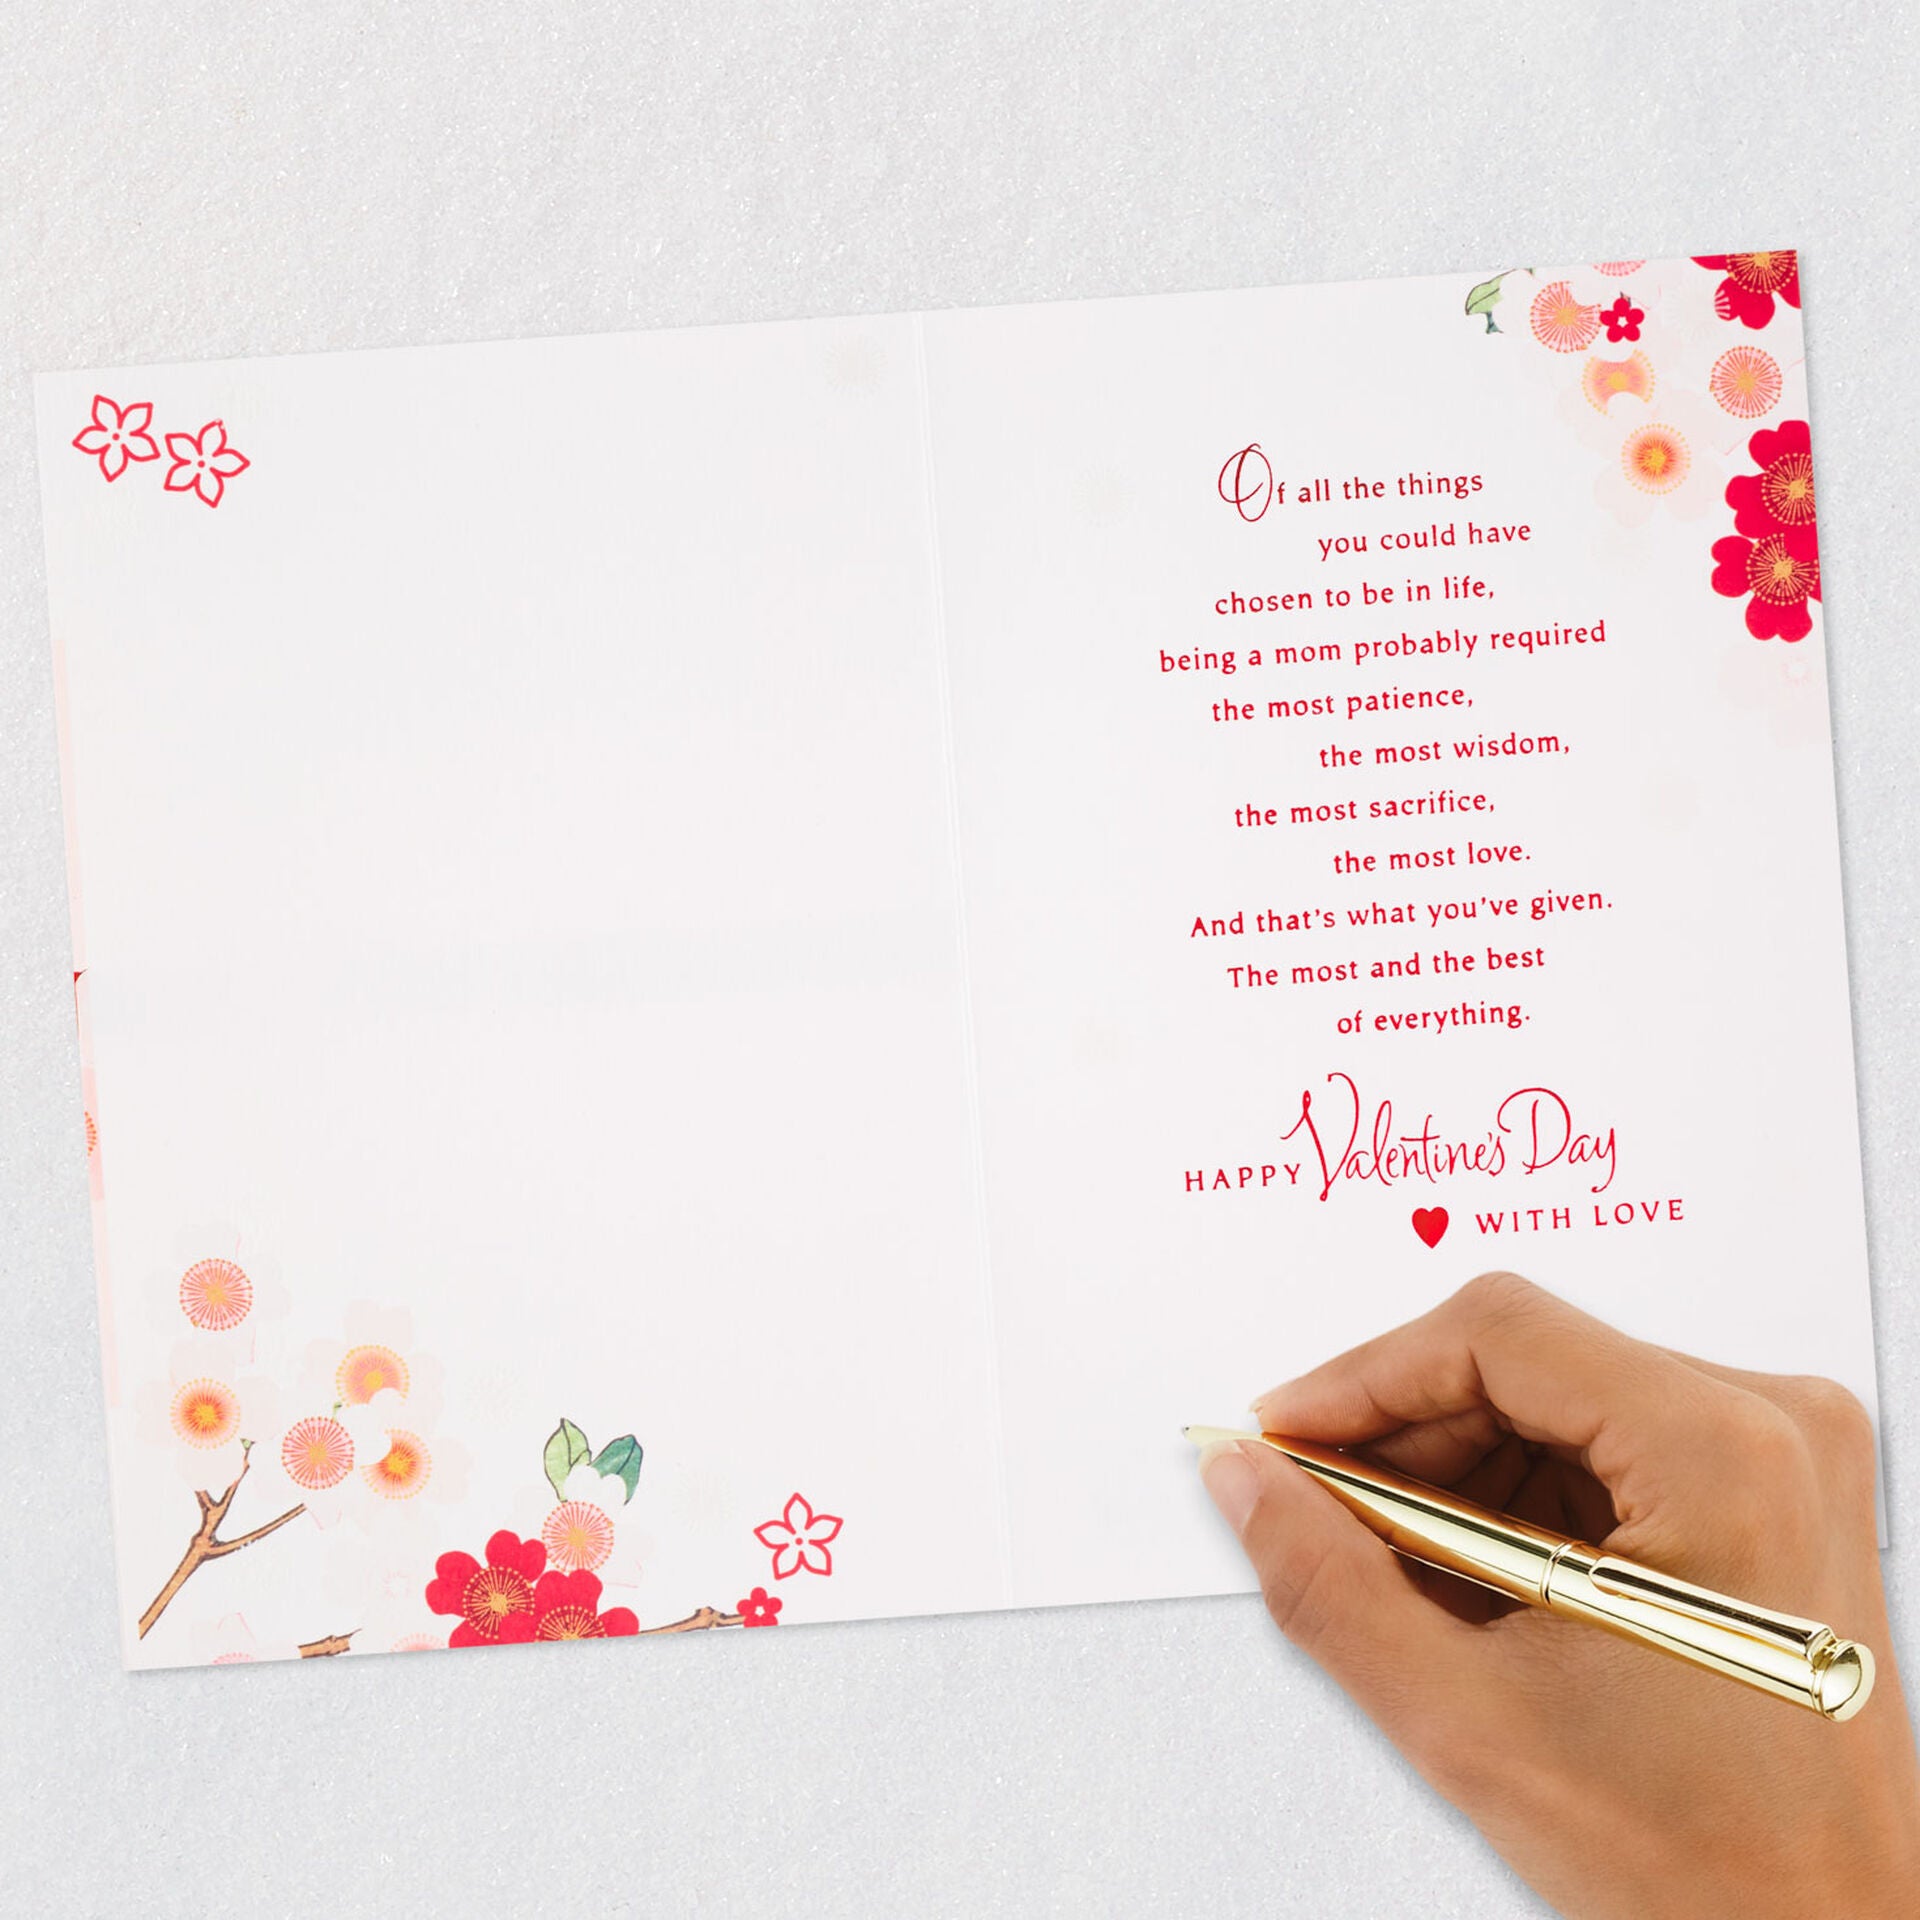 Of all the things
you could have
chosen to be in life,
being a mom probably required
the most patience,
the most wisdom,
the most sacrifice,
the most love.
And that's what you've given.
The most and the best
of everything.
HAPPY Valentine's Day
WITH LOVE